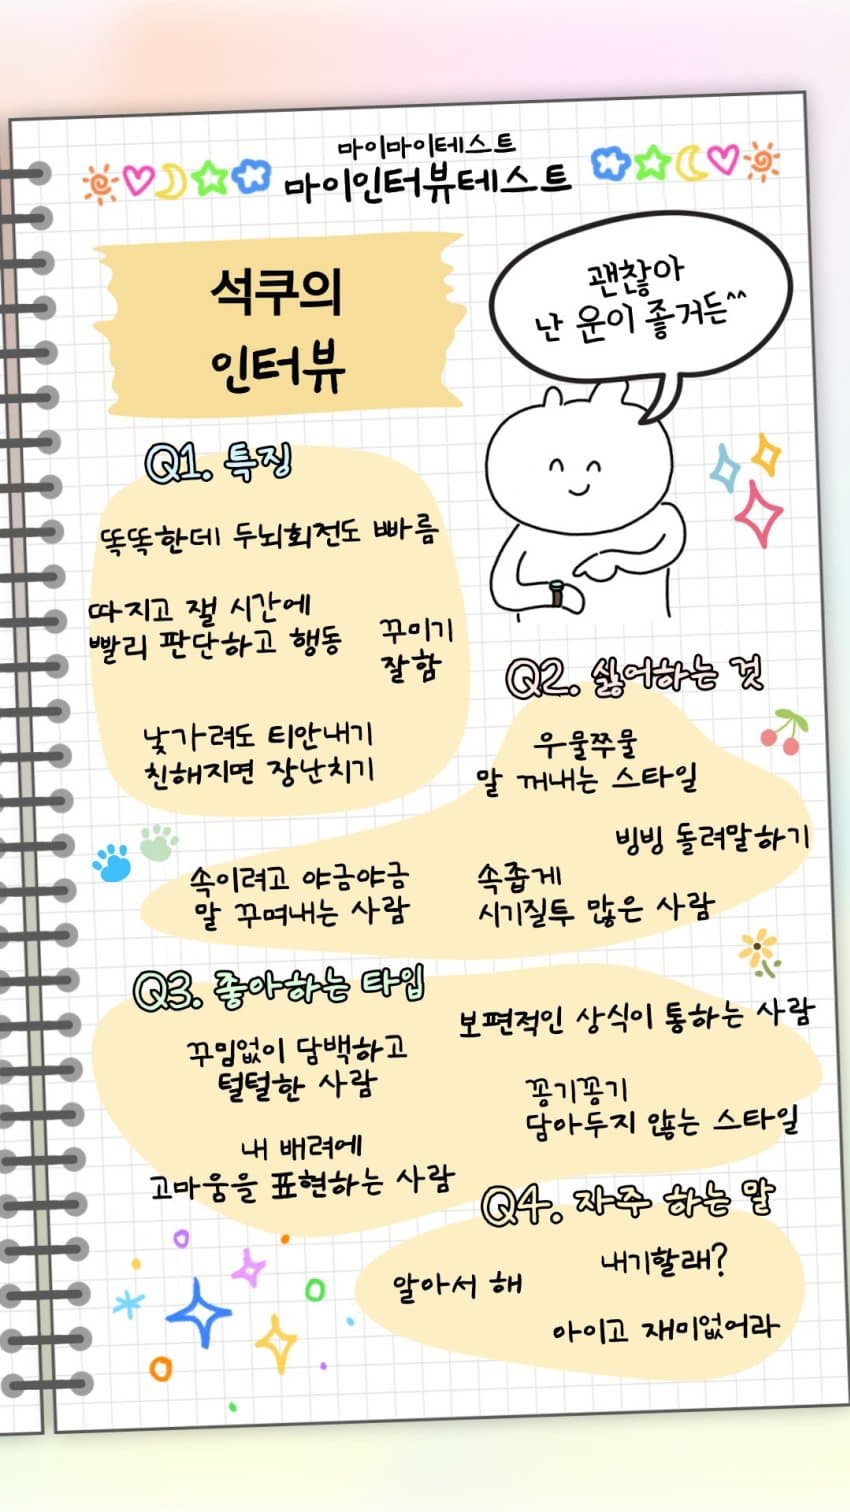 마이마이테스트
마이인터뷰테스트
석쿠의
인터뷰
괜찮아
난 운이 좋거든^^
Q1. 특징
똑똑한데 두뇌회전도 빠름
따지고 잴 시간에
빨리 판단하고 행동
꾸미기
잘함
낯가려도 티안내기
친해지면 장난치기
Q2. 싫어하는 것
우물쭈물
말 꺼내는 스타일
빙빙 돌려말하기
속이려고 야금야금
말 꾸며내는 사람
속좁게
시기질투 많은 사람
Q3. 좋아하는 타입
보편적인 상식이 통하는 사람
꾸밈없이 담백하고
털털한 사람
꽁기꽁기
담아두지 않는 스타일
내 배려에
고마움을 표현하는 사람
Q4. 자주 하는 말
알아서 해
내기할래?
아이고 재미없어라